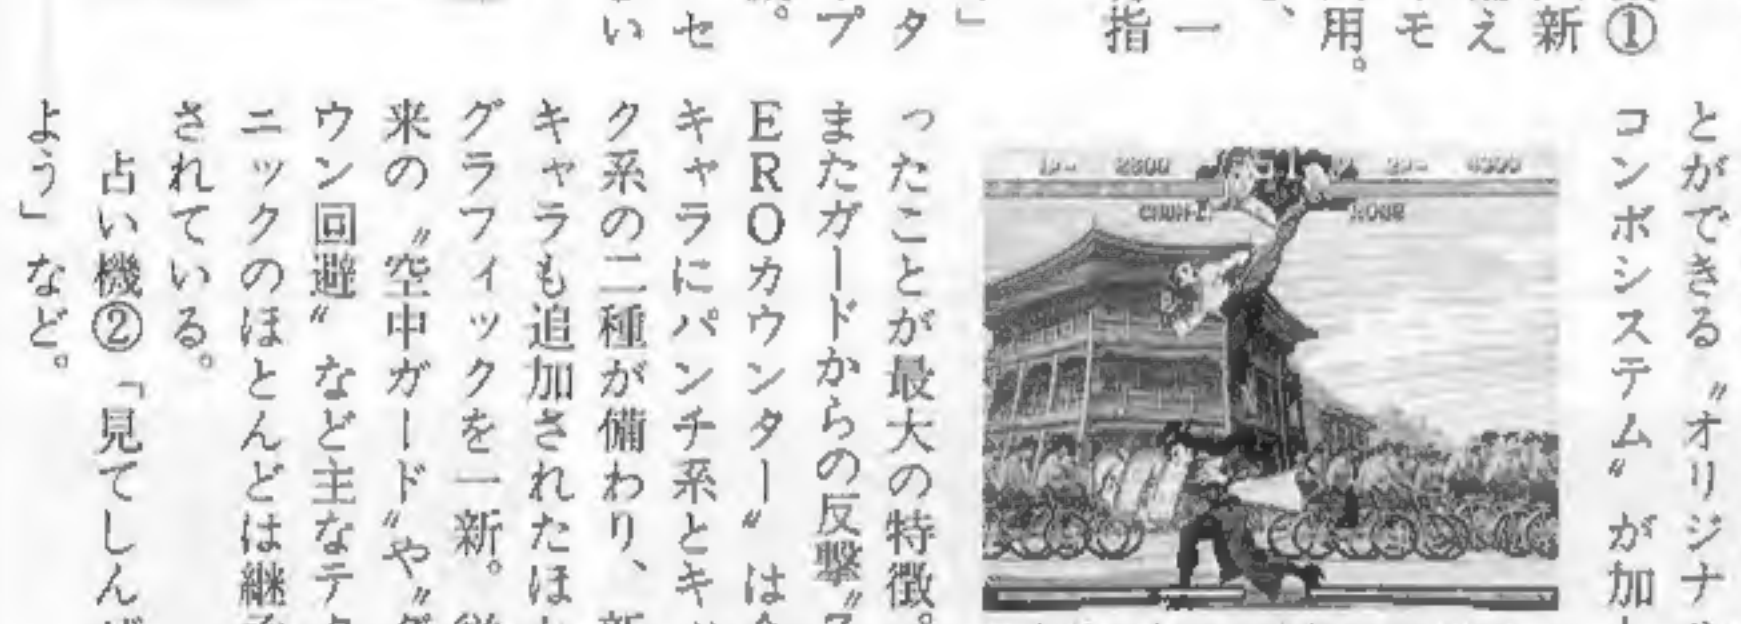 ①
新
え
モ
用。
、
一
指
」
タ
プ
。
セ
い
とができる〝オリジナ
コンボシステム〟が加
ったことが最大の特徴。
またガードからの反撃〝
EROカウンター〟は
キャラにパンチ系とキ
ク系の二種が備わり、新
キャラも追加されたほ
グラフィックを一新。
来の〝空中ガード〟や〝ダ
ウン回避〟など主なテ
ニックのほとんどは継
されている。
占い機②「見てしんぜ
よう」など。